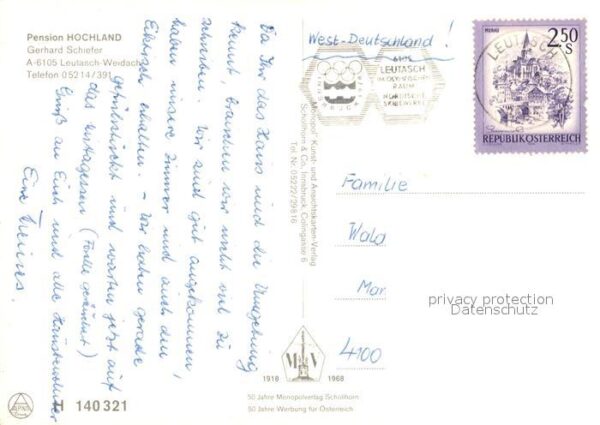 Pension HOCHLAND
Gerhard Schiefer
A-6105 Leutasch-Weidach
Telefon 05214/391
Da Ihr das Haus und die Umgebung
kennt, brauchen wir nicht viel zu
schreiben. Wir sind gut angekommen,
haben unsere Zimmer und auch den
erhalten. - Wir haben gerade
gefrühstückt und warten jetzt auf
das Mittagessen (Forelle gebacken)
Gruß an Euch und alle Hausbewohner
Eure
H 140321
Monopol Kunst- und Ansichtskarten-Verlag
Schöllhorn & Co., Innsbruck, Colingasse 6
Tel. Nr. 05222/29816
M V
1918 1968
50 Jahre Monopolverlag Schöllhorn
50 Jahre Werbung für Österreich
West-Deutschland!
6105
LEUTASCH
IM OLYMPIA-
RAUM
NORDISCHE
SKIBEWERBE
LEUTASCH
MURAU
2,50
S
REPUBLIK ÖSTERREICH
Familie
Wald
Mar
4100
privacy protection
Datenschutz